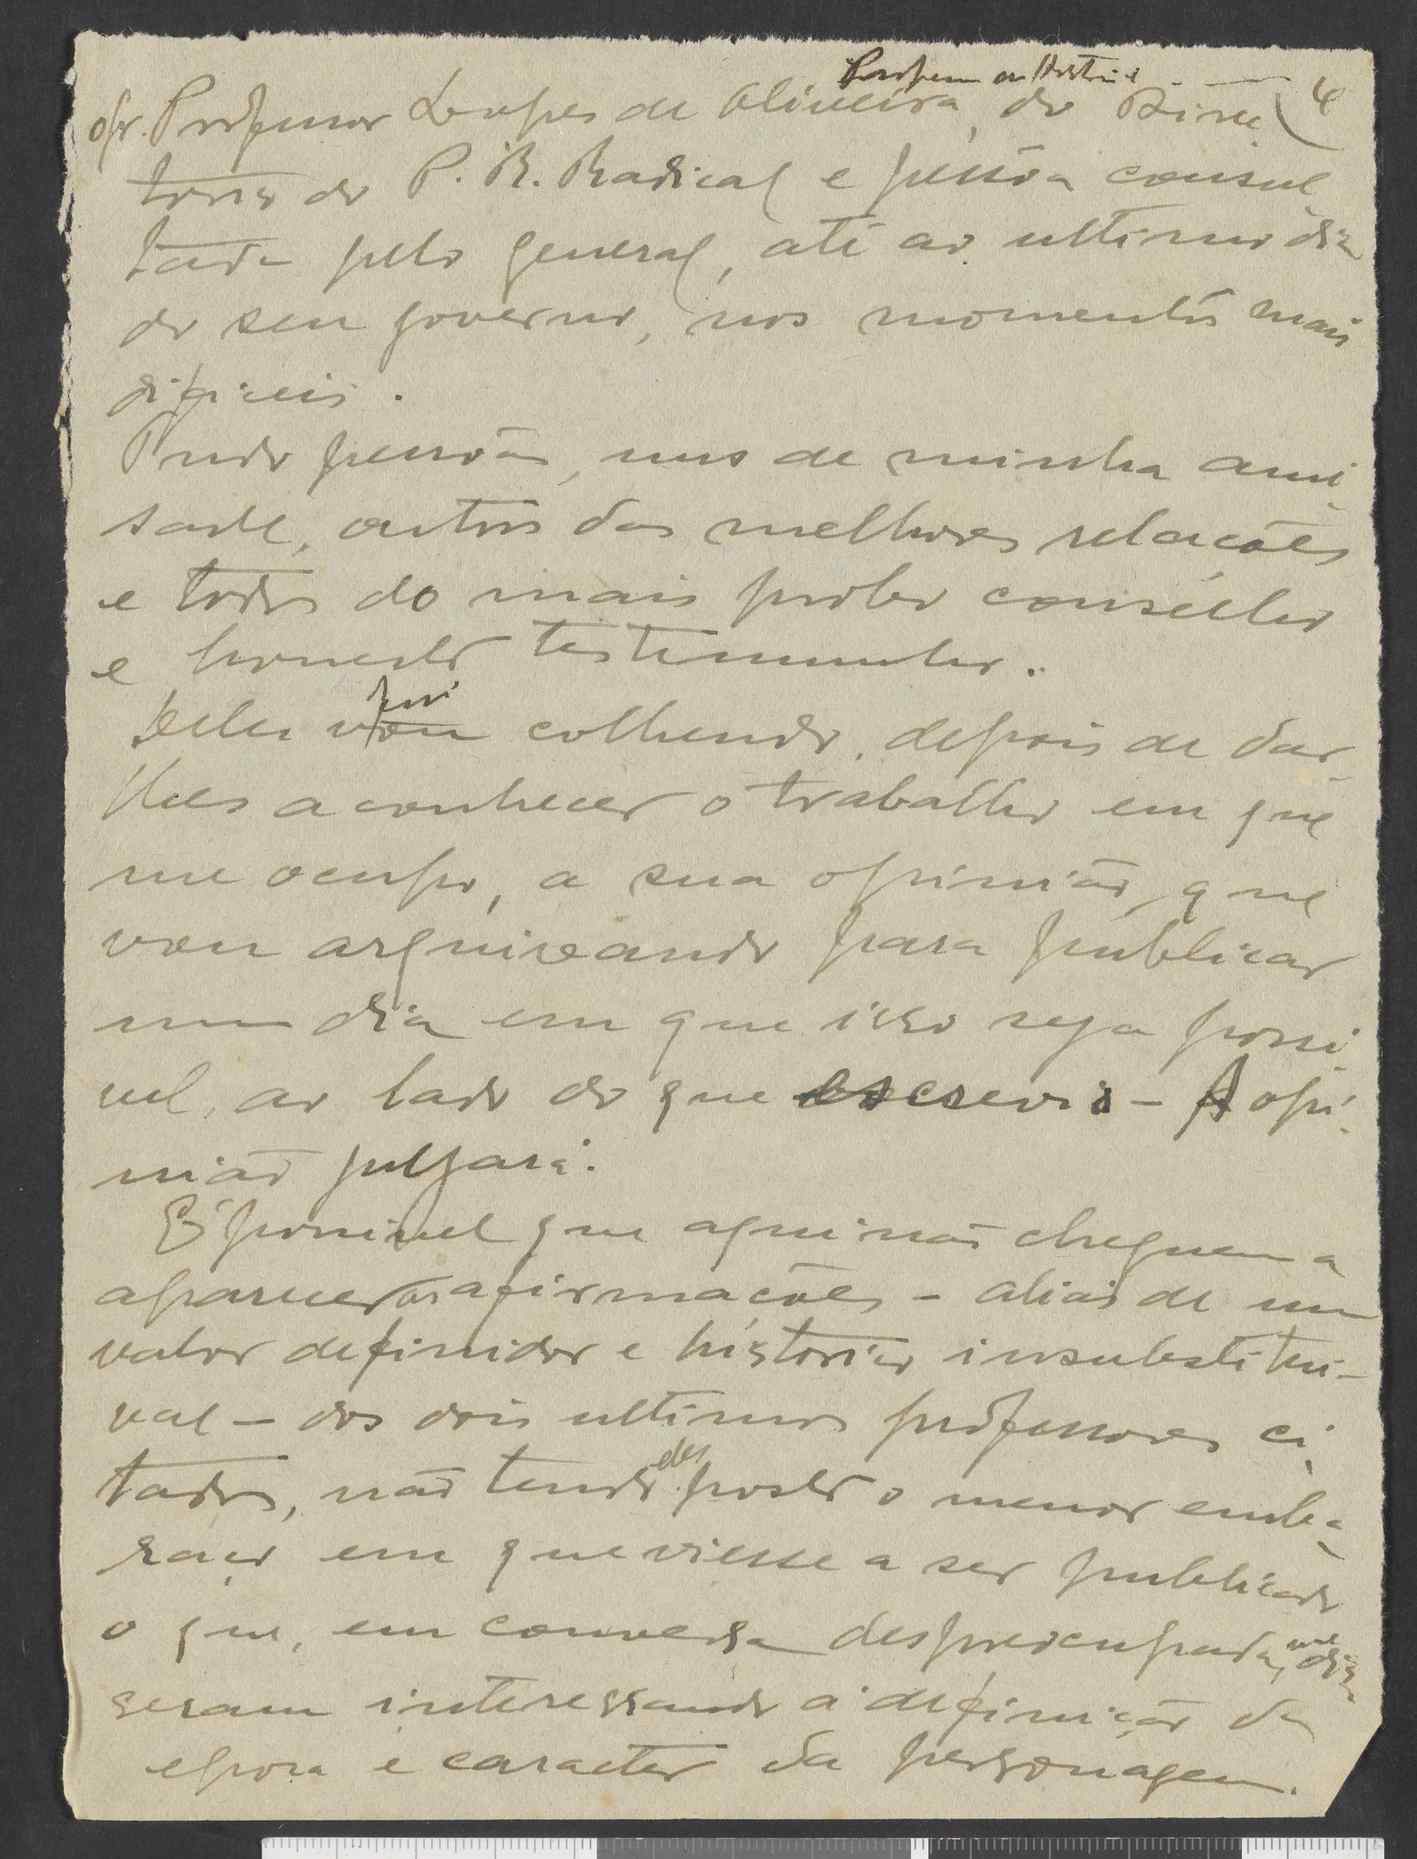 4
Professor de Historia
o sr. Professor Lopes de Oliveira, do Direc
torio do P. R. Radical e pessôa consul
tada pelo general, até ao ultimo dia
do seu governo, nos momentos mais
dificeis.
Tudo pessoas, uns de minha ami
sade, outros das melhores relacões
e todos do mais probo consêlho
e honesto testemunho.
Deles vou fui colhendo, depois de dar
lhes a conhecer o trabalho em que
me ocupo, a sua opinião, que
vou arquivando para publicar
num dia em que isso seja possi
vel, ao lado do que escrevi - A opi
nião julgará.
É possivel que aqui não cheguem a
aparecer as afirmacões - alias de um
valor definidor e historico insubstitui-
val - dos dois ultimos professores ci
tados, não tendo eles posto o menor emba
raço em que viesse a ser publicado
o que, em conversa despreocupada, me dis
seram interessando á definição da
epoca e caracter da personagem.